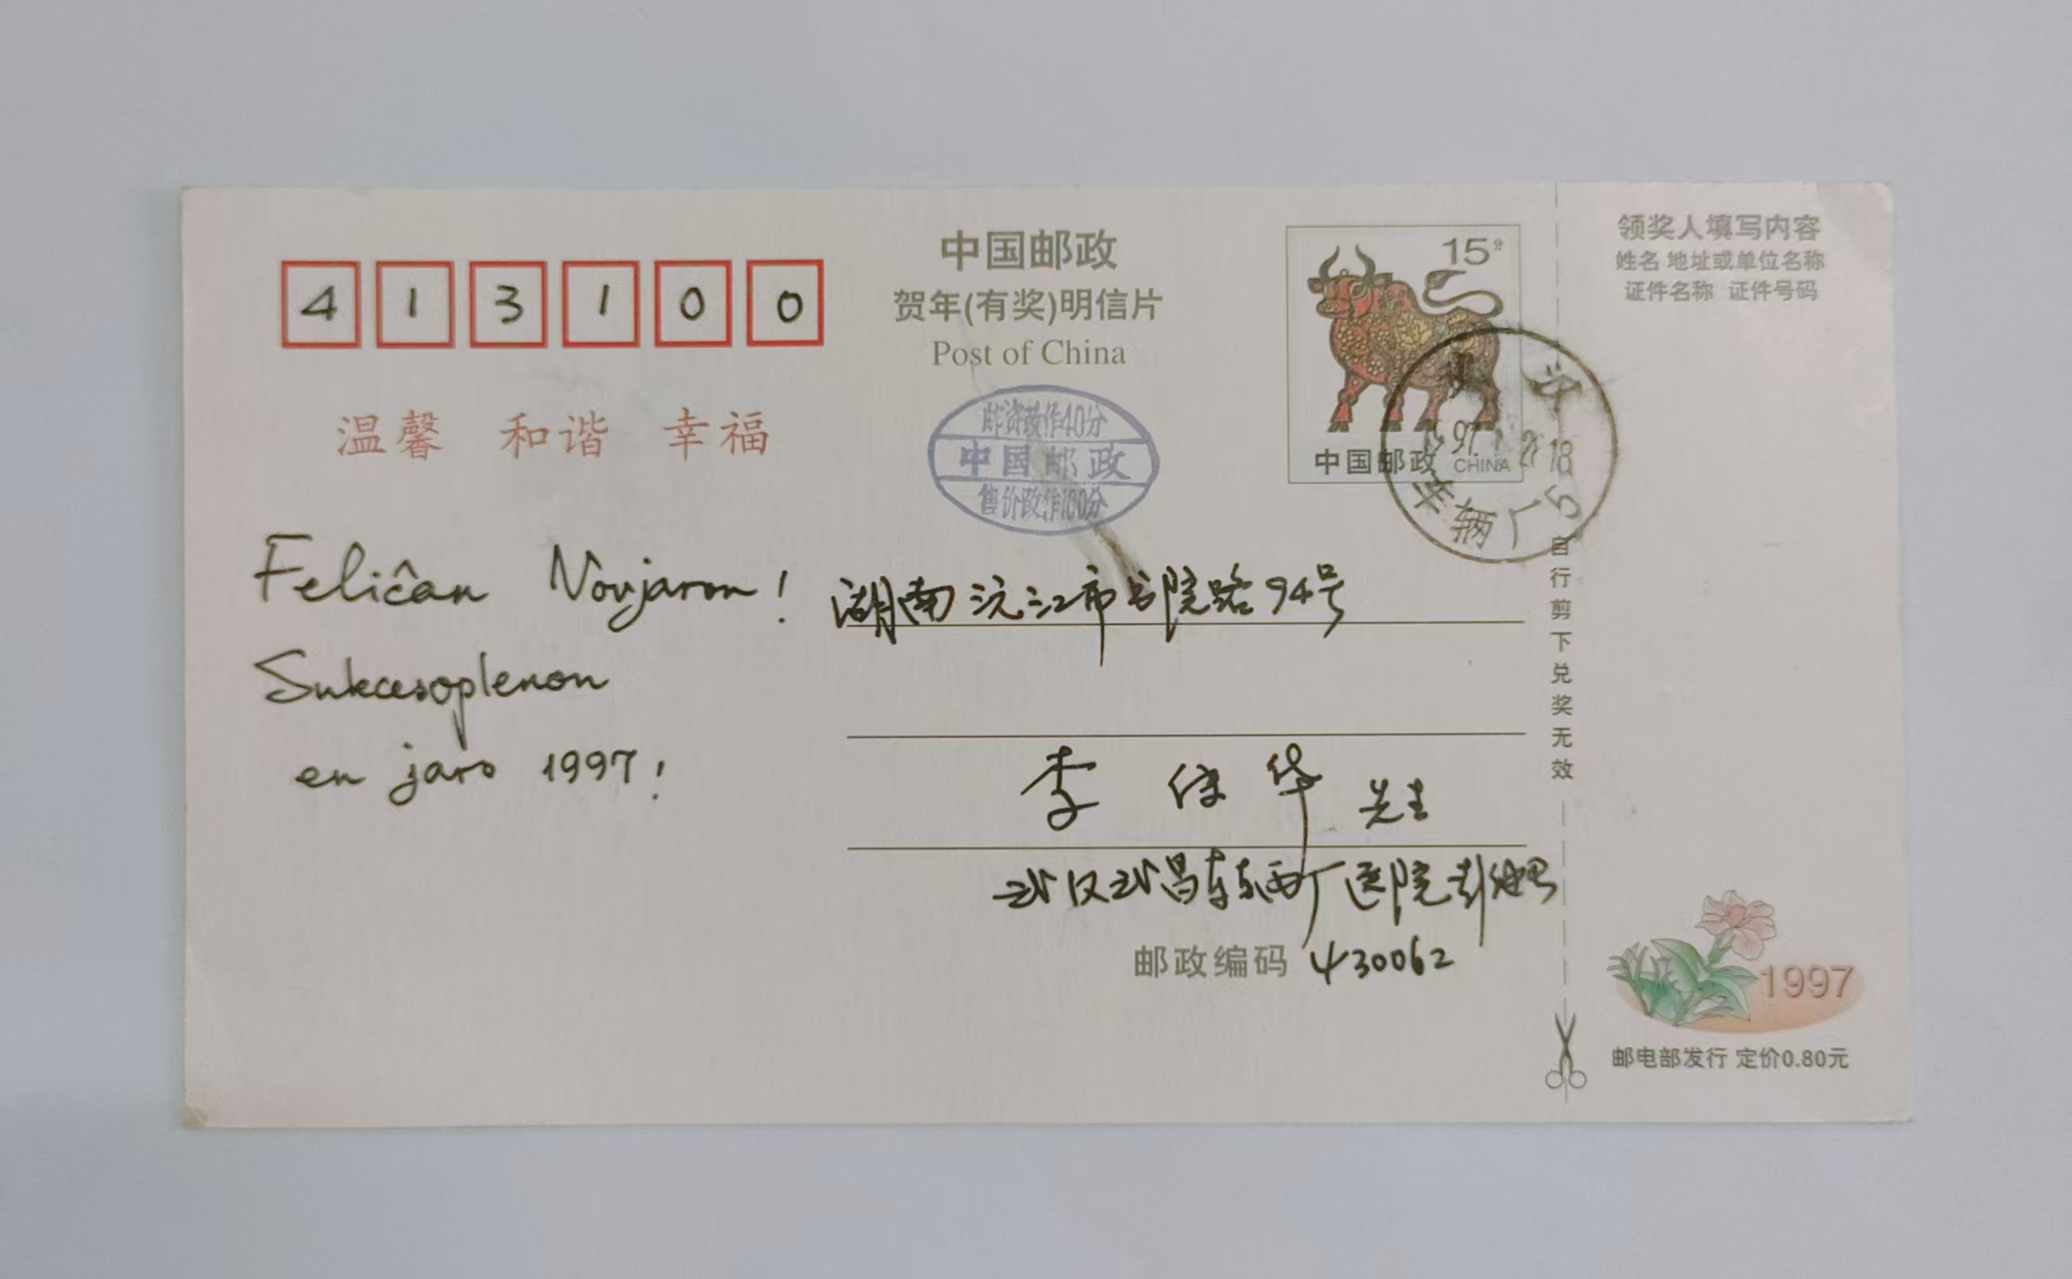 413100
中国邮政
贺年(有奖)明信片
Post of China
温馨 和谐 幸福
邮资改作40分
中国邮政
售价改作100分
15分
中国邮政 CHINA
97
18
车辆厂
5
Feliĉan Novjaron!
Sukcesoplenon
en jaro 1997!
湖南沅江市书院路94号
李 华 先生
武汉武昌车东西厂医院
邮政编码 430062
自行剪下兑奖无效
领奖人填写内容
姓名 地址或单位名称
证件名称 证件号码
1997
邮电部发行 定价0.80元